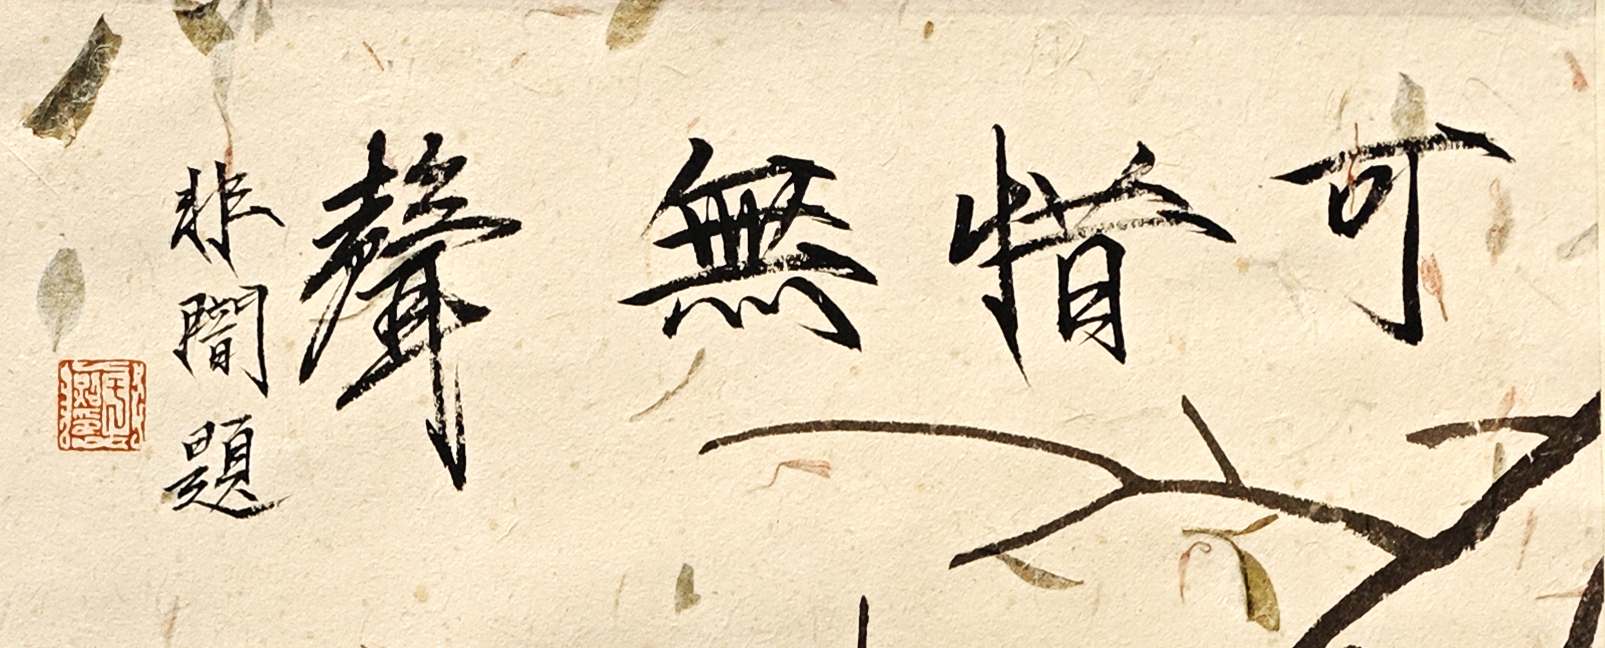 可惜無聲
非闇題